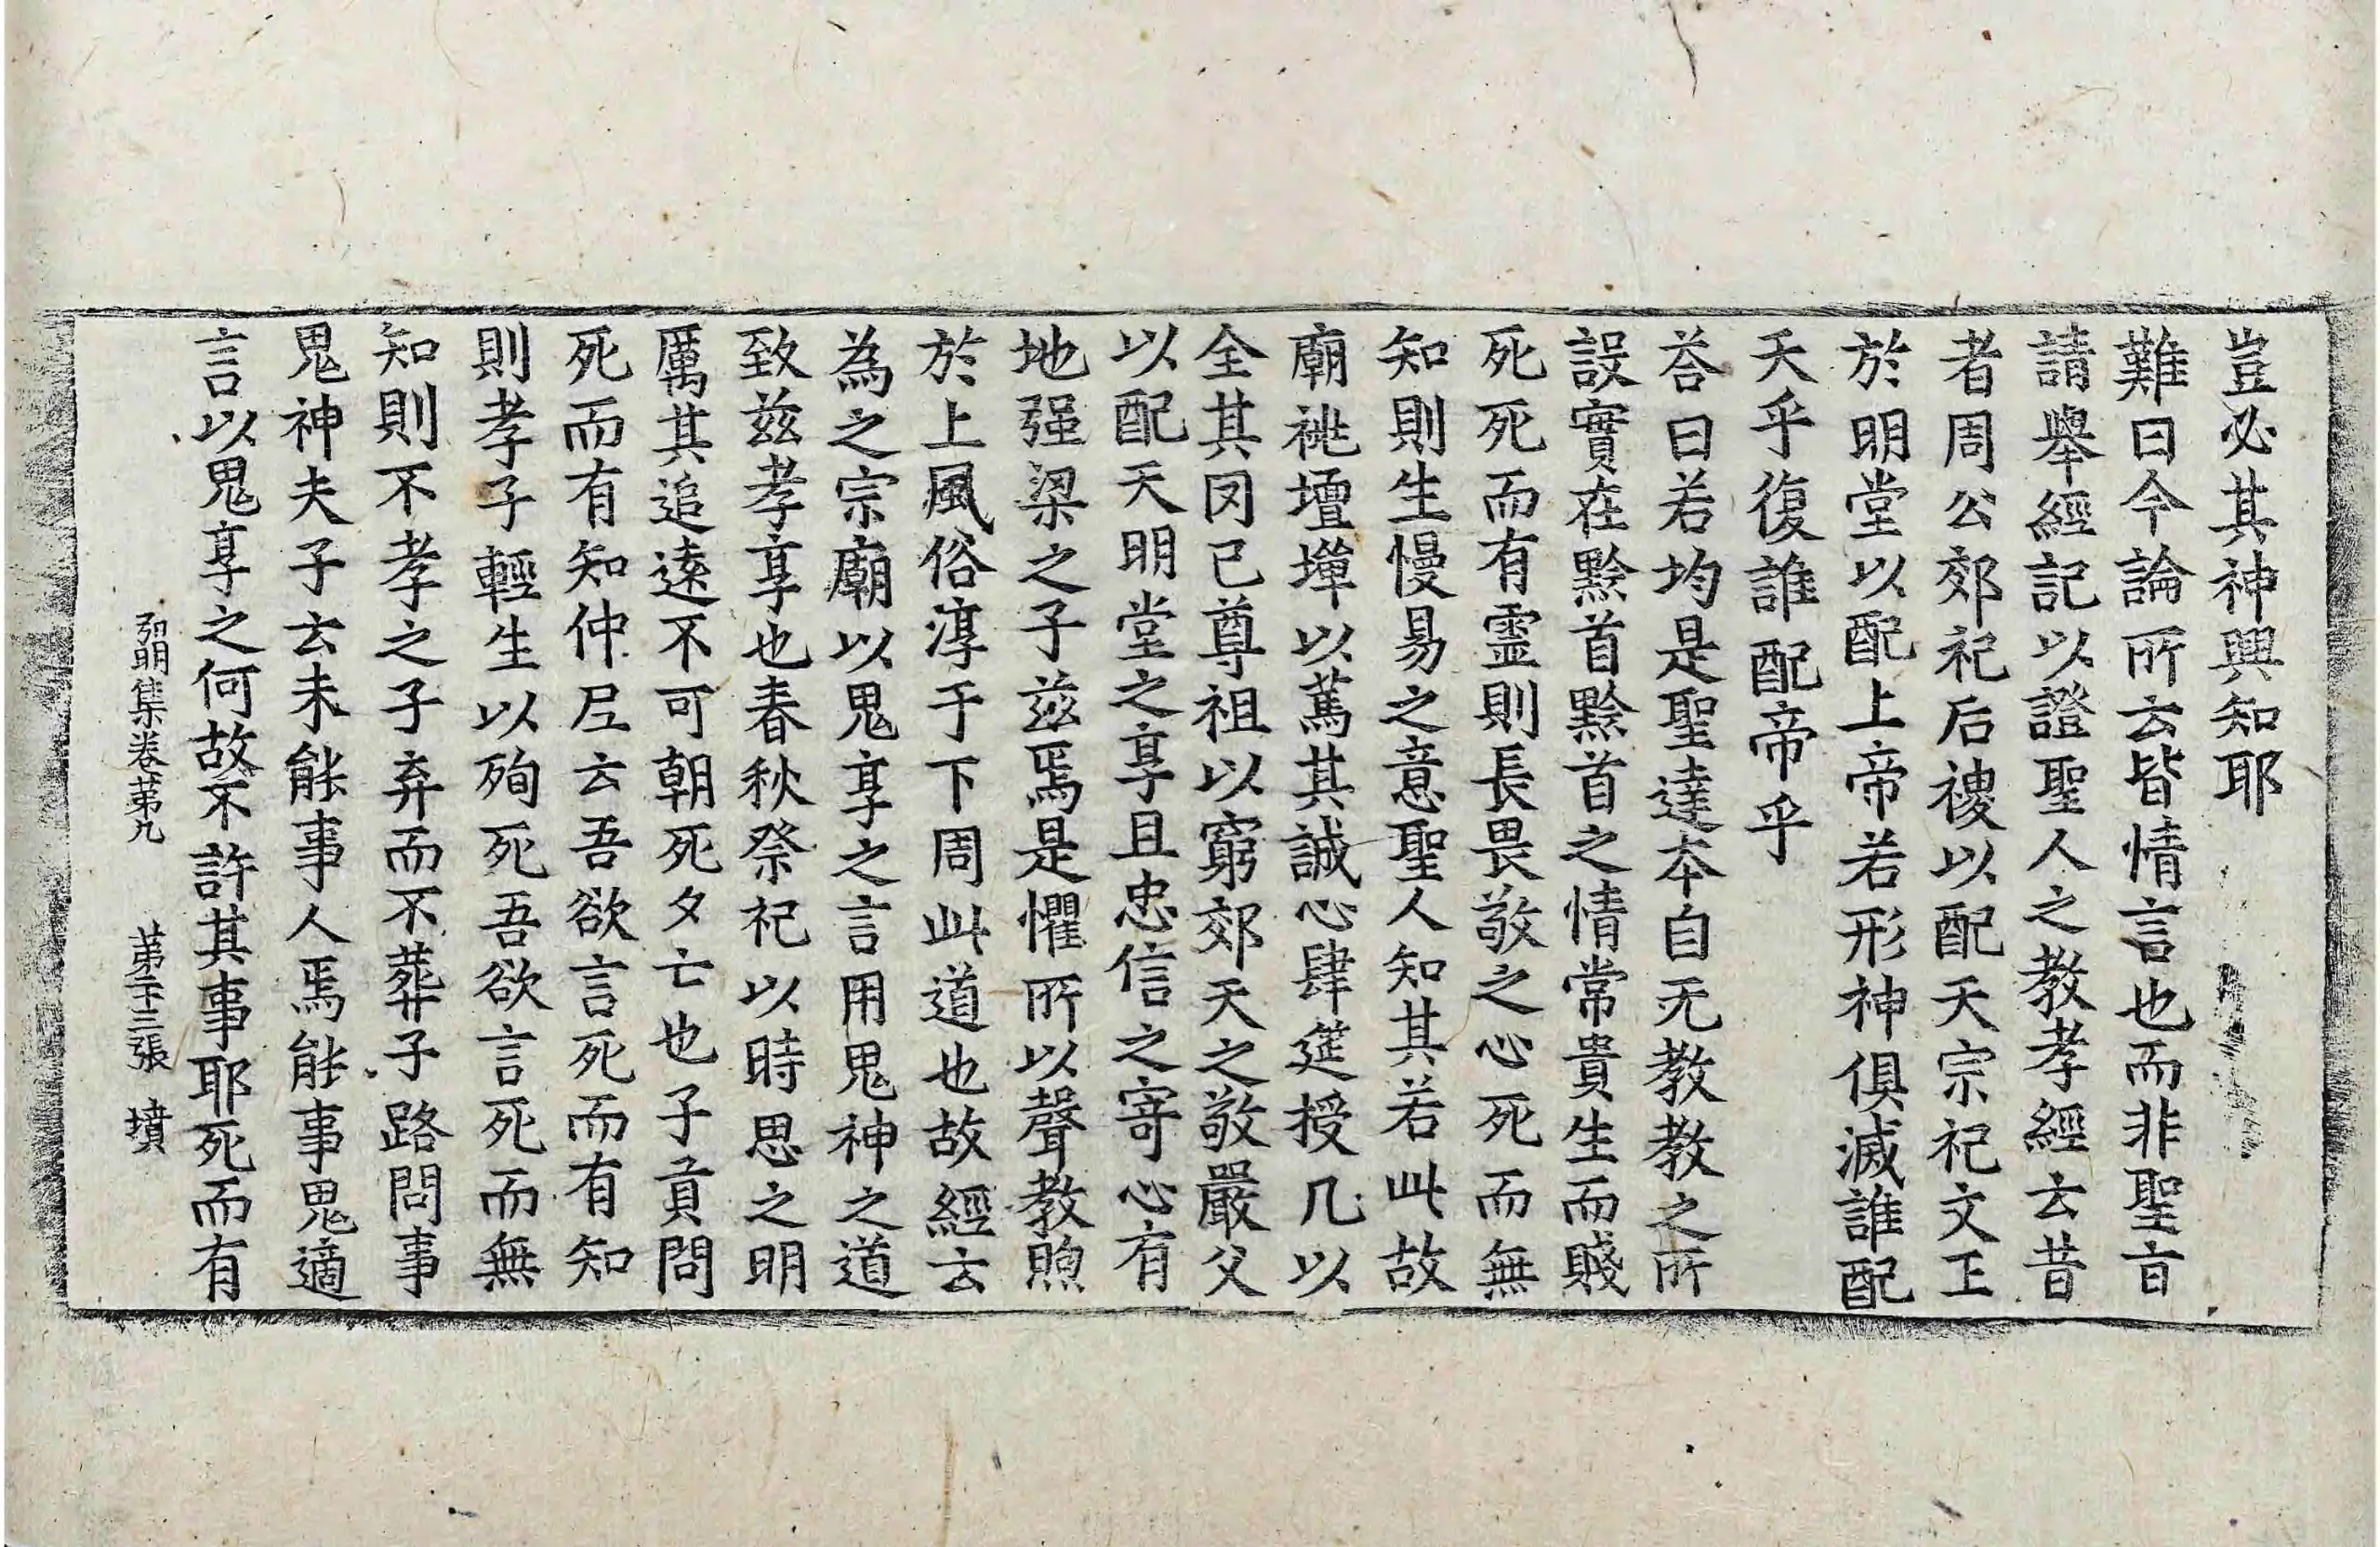 豈必其神與知耶
難曰今論所云皆情言也而非聖旨
請舉經記以證聖人之教孝經云昔
者周公郊祀后稷以配天宗祀文王
於明堂以配上帝若形神俱滅誰配
天乎復誰配帝乎
荅曰若均是聖達本自无教教之所
設實在黔首黔首之情常貴生而賤
死死而有靈則長畏敬之心死而無
知則生慢易之意聖人知其若此故
廟祧壇墠以篤其誠心肆筵授几以
全其罔已尊祖以窮郊天之敬嚴父
以配天明堂之享且忠信之寄心有
地强梁之子茲焉是懼所以聲教煦
於上風俗淳于下周此道也故經云
為之宗廟以鬼享之言用鬼神之道
致茲孝享也春秋祭祀以時思之明
厲其追遠不可朝死夕亡也子貢問
死而有知仲尼云吾欲言死而有知
則孝子輕生以殉死吾欲言死而無
知則不孝之子弃而不葬子路問事
鬼神夫子云未能事人焉能事鬼適
言以鬼享之何故不許其事耶死而有
弘明集卷第九 第二十三張 墳